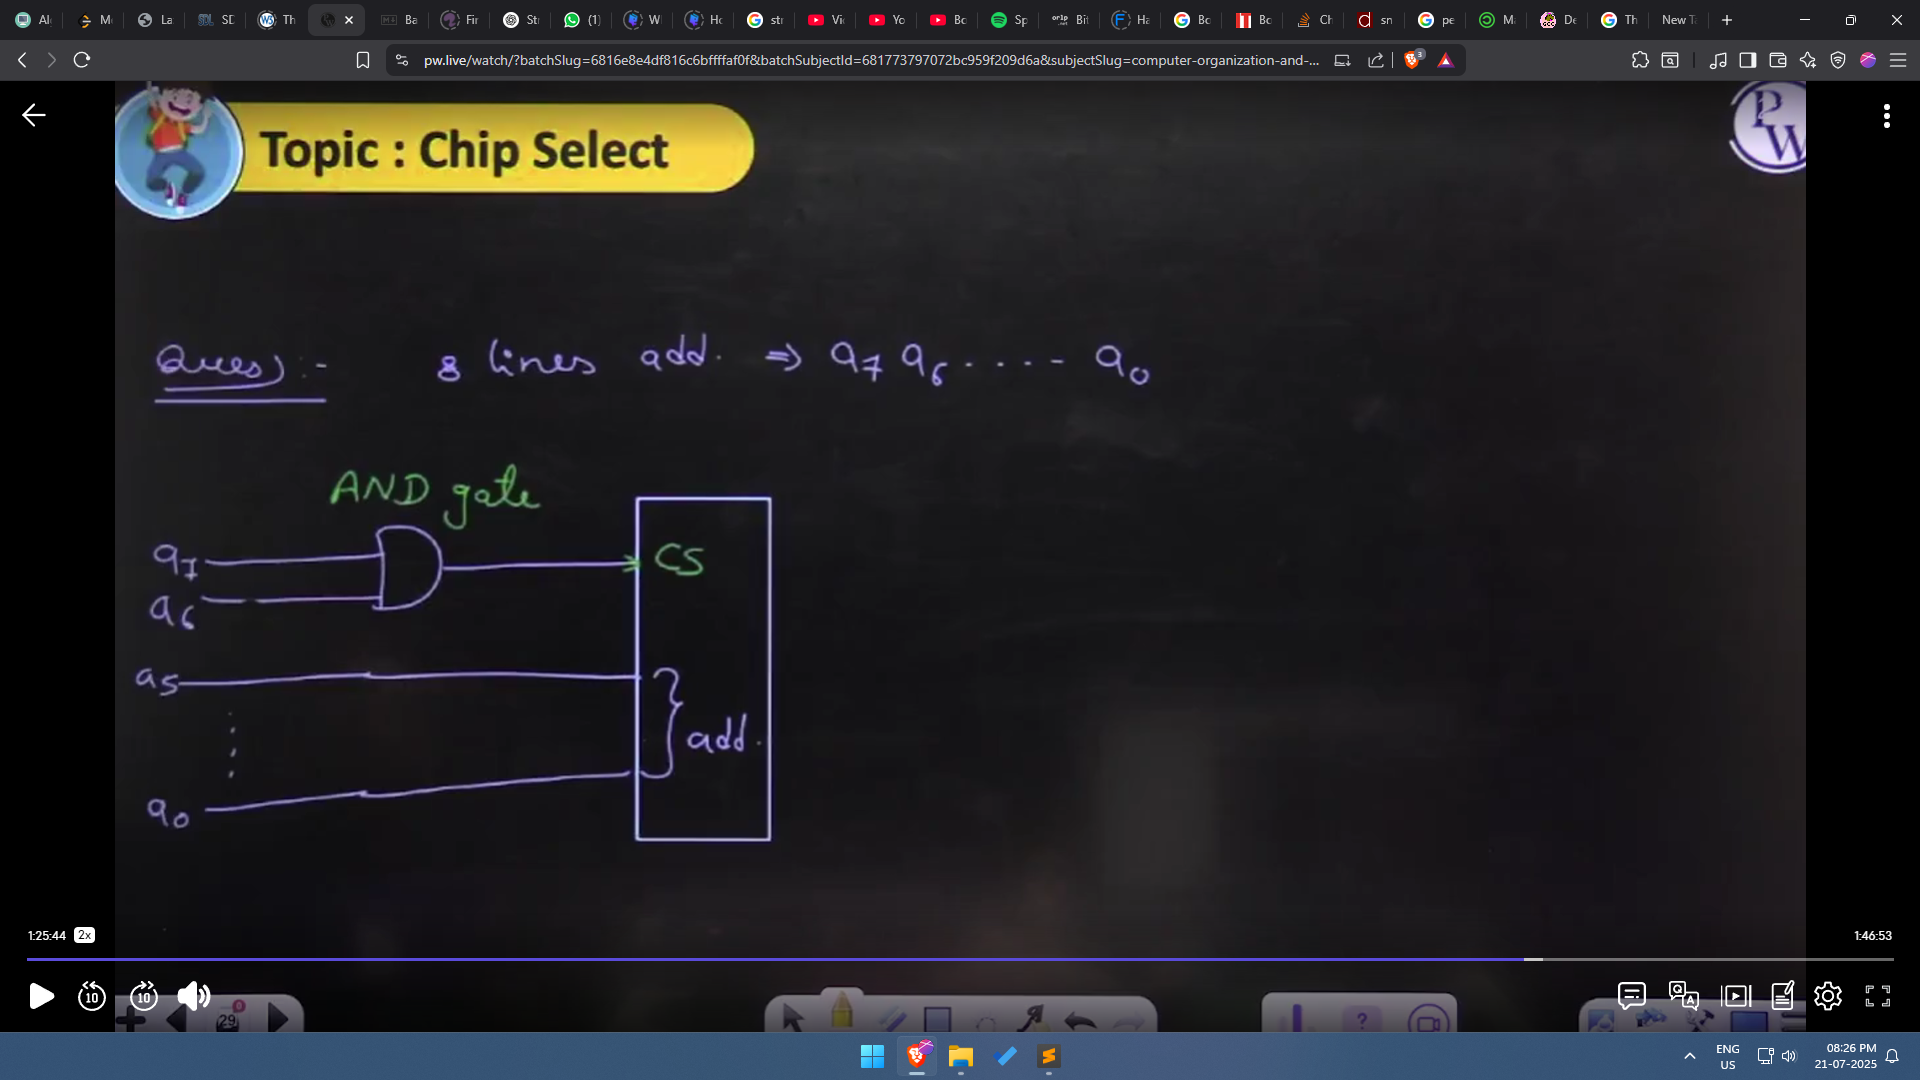 Al
M
La
SD
Th
Ba
Fir
Str
(1)
W
Ho
str
Vi
Yo
Bo
Sp
Bit
Ha
Bo
Bo
Ch
sn
pe
M
De
Th
New T
pw.live/watch/?batchSlug=6816e8e4df816c6bffffaf0f&batchSubjectId=681773797072bc959f209d6a&subjectSlug=computer-organization-and-...
3
Topic : Chip Select
PW
Ques :- 8 lines add. ⇒ a7 a6 ..... a0
AND gate
a7
CS
a6
a5
add.
a0
1:25:44 2x
1:46:53
10
10
29
0
?
Q A
ENG
US
08:26 PM
21-07-2025